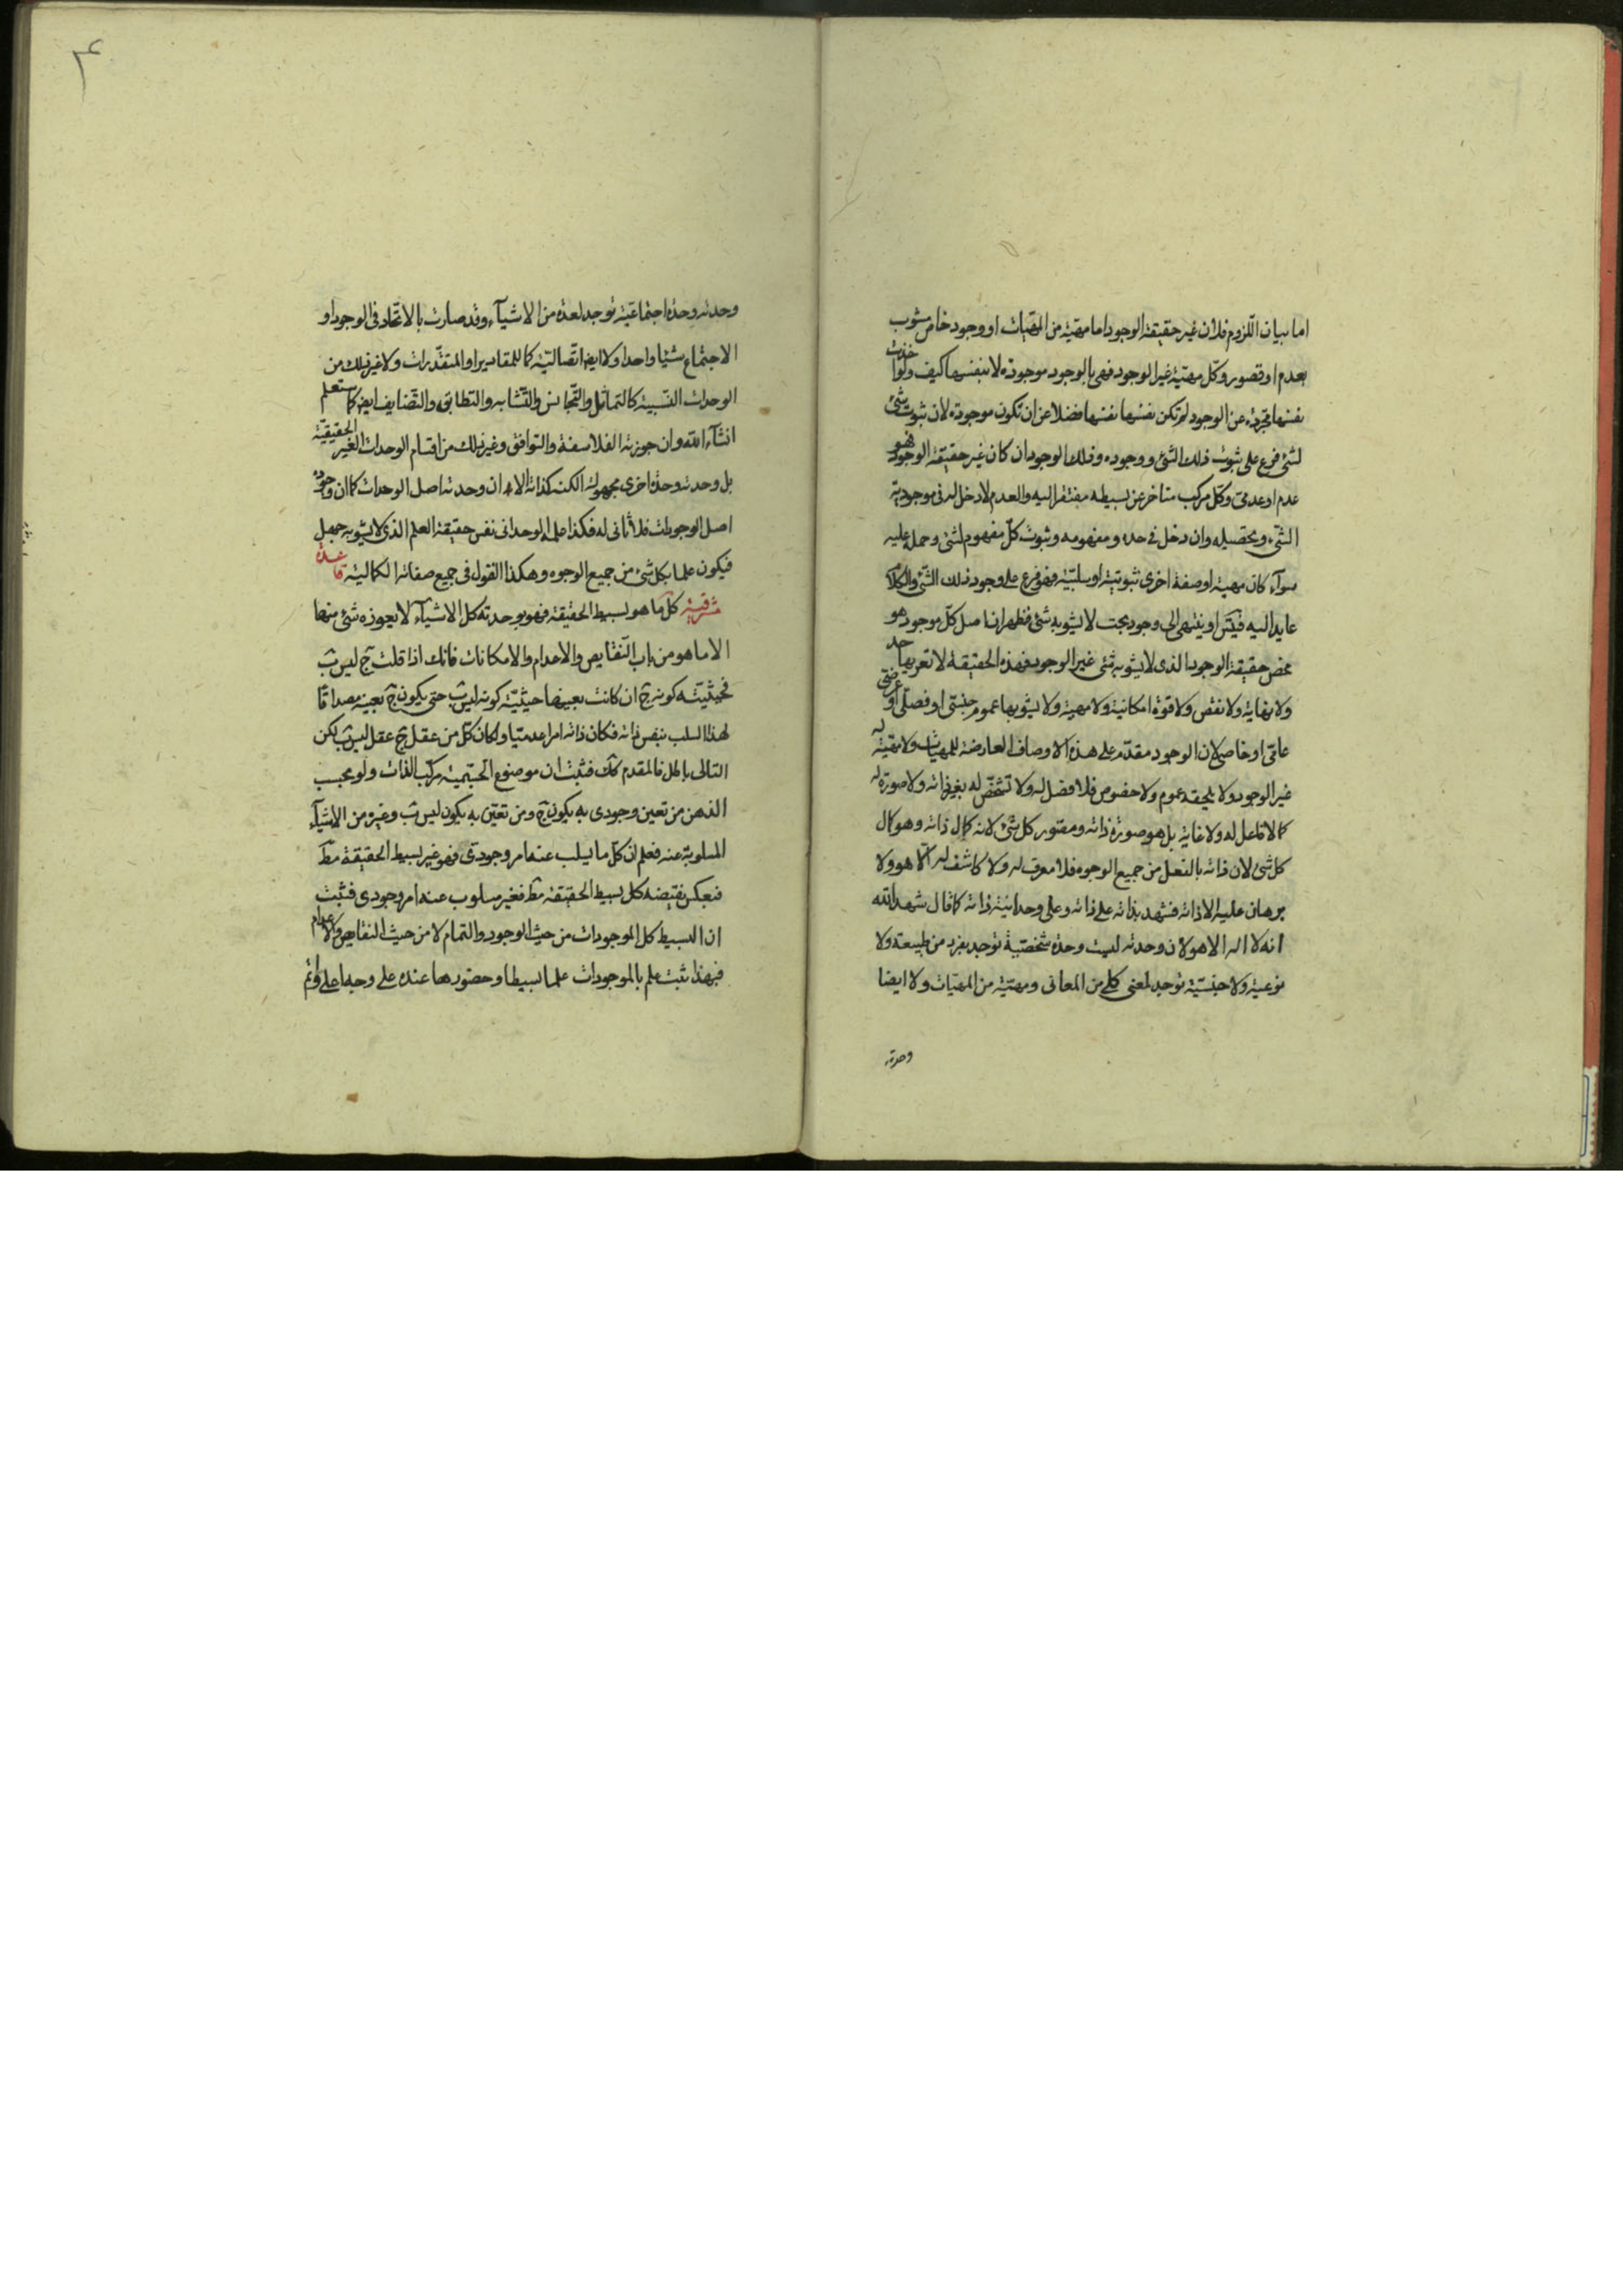 اما بيان اللزوم فلان غير حقيقة الوجود اما مهية من المهيات او وجود خاص مشوب
بعدم او قصور وكل مهية غير الوجود فهى بالوجود موجودة لا بنفسها كيف ولو اخذت
نفسها مجردة عن الوجود لم تكن نفسها نفسها فضلا عن ان تكون موجودة لان ثبوت شئ
لشئ فرع على ثبوت ذلك الشئ ووجوده وذلك الوجود ان كان غير حقيقة الوجود فهو
عدم او عدمى وكل مركب متاخر عن بسيطه مفتقر اليه والعدم لا دخل له فى موجودية
الشئ وتحصيله وان دخل فى حده ومفهومه وثبوت كل مفهوم لشئ وحمله عليه
سوآء كان مهية او صفة اخرى ثبوتية او سلبية فهو فرع على وجود ذلك الشئ والكلام
عايد اليه فيتس او ينتهى الى وجود بحت لا يشوبه شئ فظهر ان اصل كل موجود هو
محض حقيقة الوجود الذى لا يشوبه شئ غير الوجود فهذه الحقيقة لا تعريها حد
ولا نهاية ولا نقص ولا قوة امكانية ولا مهية ولا يشوبها عموم جنسى او فصلى او عرضى
عامى او خاصى لان الوجود مقدم على هذه الاوصاف العارضة للمهيات ولا مهية له
غير الوجود ولا يلحقه عموم ولا خصوص فلا فصل له ولا تشخص له بغير ذاته ولا صورة له
كما لا فاعل له ولا غاية بل هو صورة ذاته ومصور كل شئ لانه كمال ذاته وهو كمال
كل شئ لان ذاته بالفعل من جميع الوجوه فلا معرف له ولا كاشف له الا هو ولا
برهان عليه الا ذاته فشهد بذاته على ذاته وعلى وحدانية ذاته كما قال شهد الله
انه لا اله الا هو لان وحدته ليست وحدة شخصية توجد بفرد من طبيعة ولا
نوعية ولا جنسية توجد لمعنى كلى من المعانى ومهية من المهيات ولا ايضا
وحدته
۴
وحدته وحدة اجتماعية توجد لعدة من الاشيآء وقد صارت بالاتحاد فى الوجود او
الاجتماع شيئا واحدا ولا ايض اتصالية كما للمقادير او المتقدرات ولا غير ذلك من
الوحدات النسبية كالتماثل والتجانس والتشابه والتطابق والتضايف ايض كما ستعلم
انشآء الله وان جوزته الفلاسفة والتوافق وغير ذلك من اقسام الوحدات الغير الحقيقية
بل وحدته وحدة اخرى مجهولة الكنه كذاته الا ان وحدته اصل الوحدات كما ان وجوده
اصل الوجودات فلا ثانى له فكذا علمه الوحدانى نفس حقيقة العلم الذى لا يشوبه جهل
فيكون علما بكل شئ من جميع الوجوه وهكذا القول فى جميع صفاته الكمالية قاعدة
مشرقية كل ما هو بسيط الحقيقة فهو بوحدته كل الاشيآء لا يعوزه شئ منها
الا ما هو من باب النقايص والاعدام والامكانات فانك اذا قلت ج ليس ب
فحيثية كونه ج ان كانت بعينها حيثية كونه ليس ب حتى يكون ج بعينه مصداقا
لهذا السلب بنفس ذاته فكان ذاته امرا عدميا ولكان كل من عقل ج عقل ليس ب لكن
التالى باطل فالمقدم كك فثبت ان موضوع الجيمية مركب الذات ولو بحسب
الذهن من تعين وجودى به يكون ج ومن تعين به يكون ليس ب وغيره من الاشيآء
المسلوبة عنه فعلم ان كل ما يسلب عنه امر وجودى فهو غير بسيط الحقيقة مط
فبعكس نقيضه كل بسيط الحقيقة مط فغير مسلوب عنه امر وجودى فثبت
ان البسيط كل الموجودات من حيث الوجود والتمام لا من حيث النقايص والاعدام
فبهذا ثبت علم بالموجودات علما بسيطا وحضورها عنده على وجه اعلى واتم